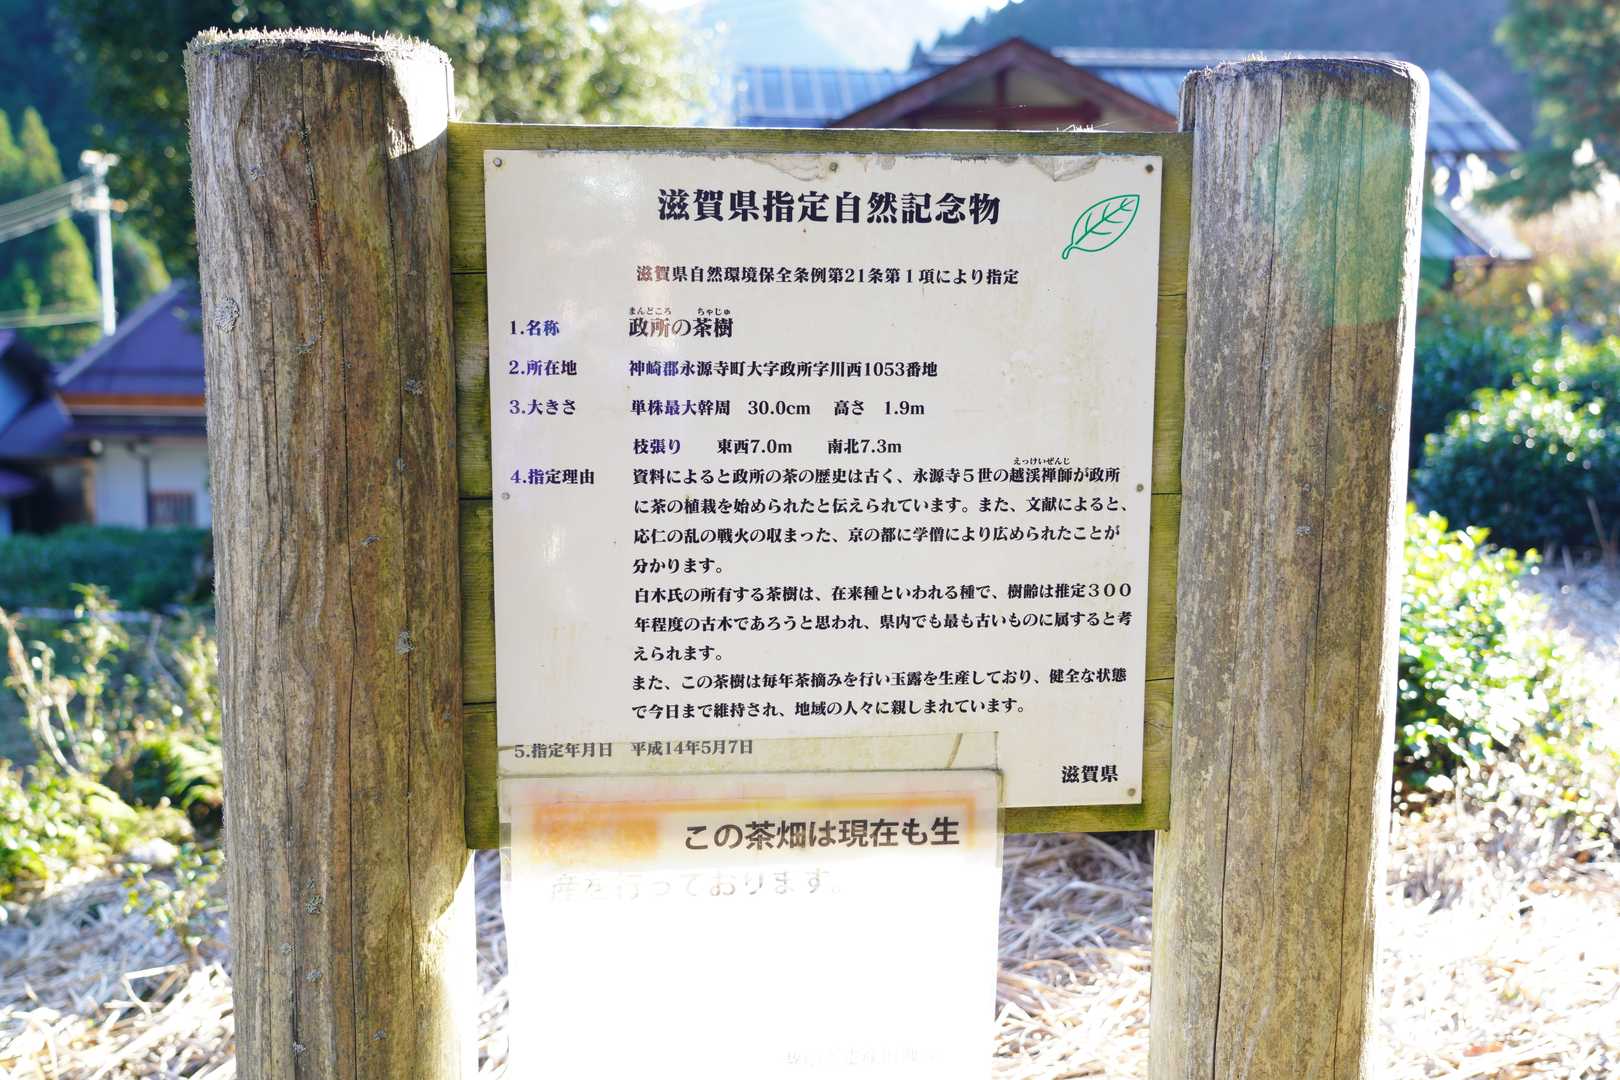 滋賀県指定自然記念物
滋賀県自然環境保全条例第21条第1項により指定
まんどころ ちゃじゅ
1.名称 政所の茶樹
2.所在地 神崎郡永源寺町大字政所字川西1053番地
3.大きさ 単株最大幹周 30.0cm 高さ 1.9m
枝張り 東西7.0m 南北7.3m
えっけいぜんじ
4.指定理由 資料によると政所の茶の歴史は古く、永源寺5世の越渓禅師が政所
に茶の植栽を始められたと伝えられています。また、文献によると、
応仁の乱の戦火の収まった、京の都に学僧により広められたことが
分かります。
白木氏の所有する茶樹は、在来種といわれる種で、樹齢は推定300
年程度の古木であろうと思われ、県内でも最も古いものに属すると考
えられます。
また、この茶樹は毎年茶摘みを行い玉露を生産しており、健全な状態
で今日まで維持され、地域の人々に親しまれています。
5.指定年月日 平成14年5月7日
滋賀県
この茶畑は現在も生
産を行っております。